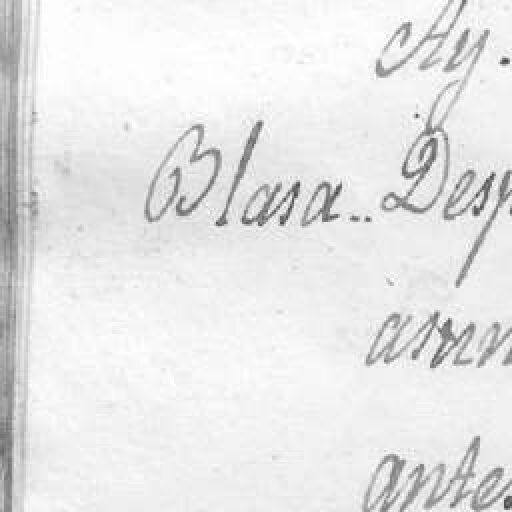 Ay.
Blasa.. Desp
asun
antes